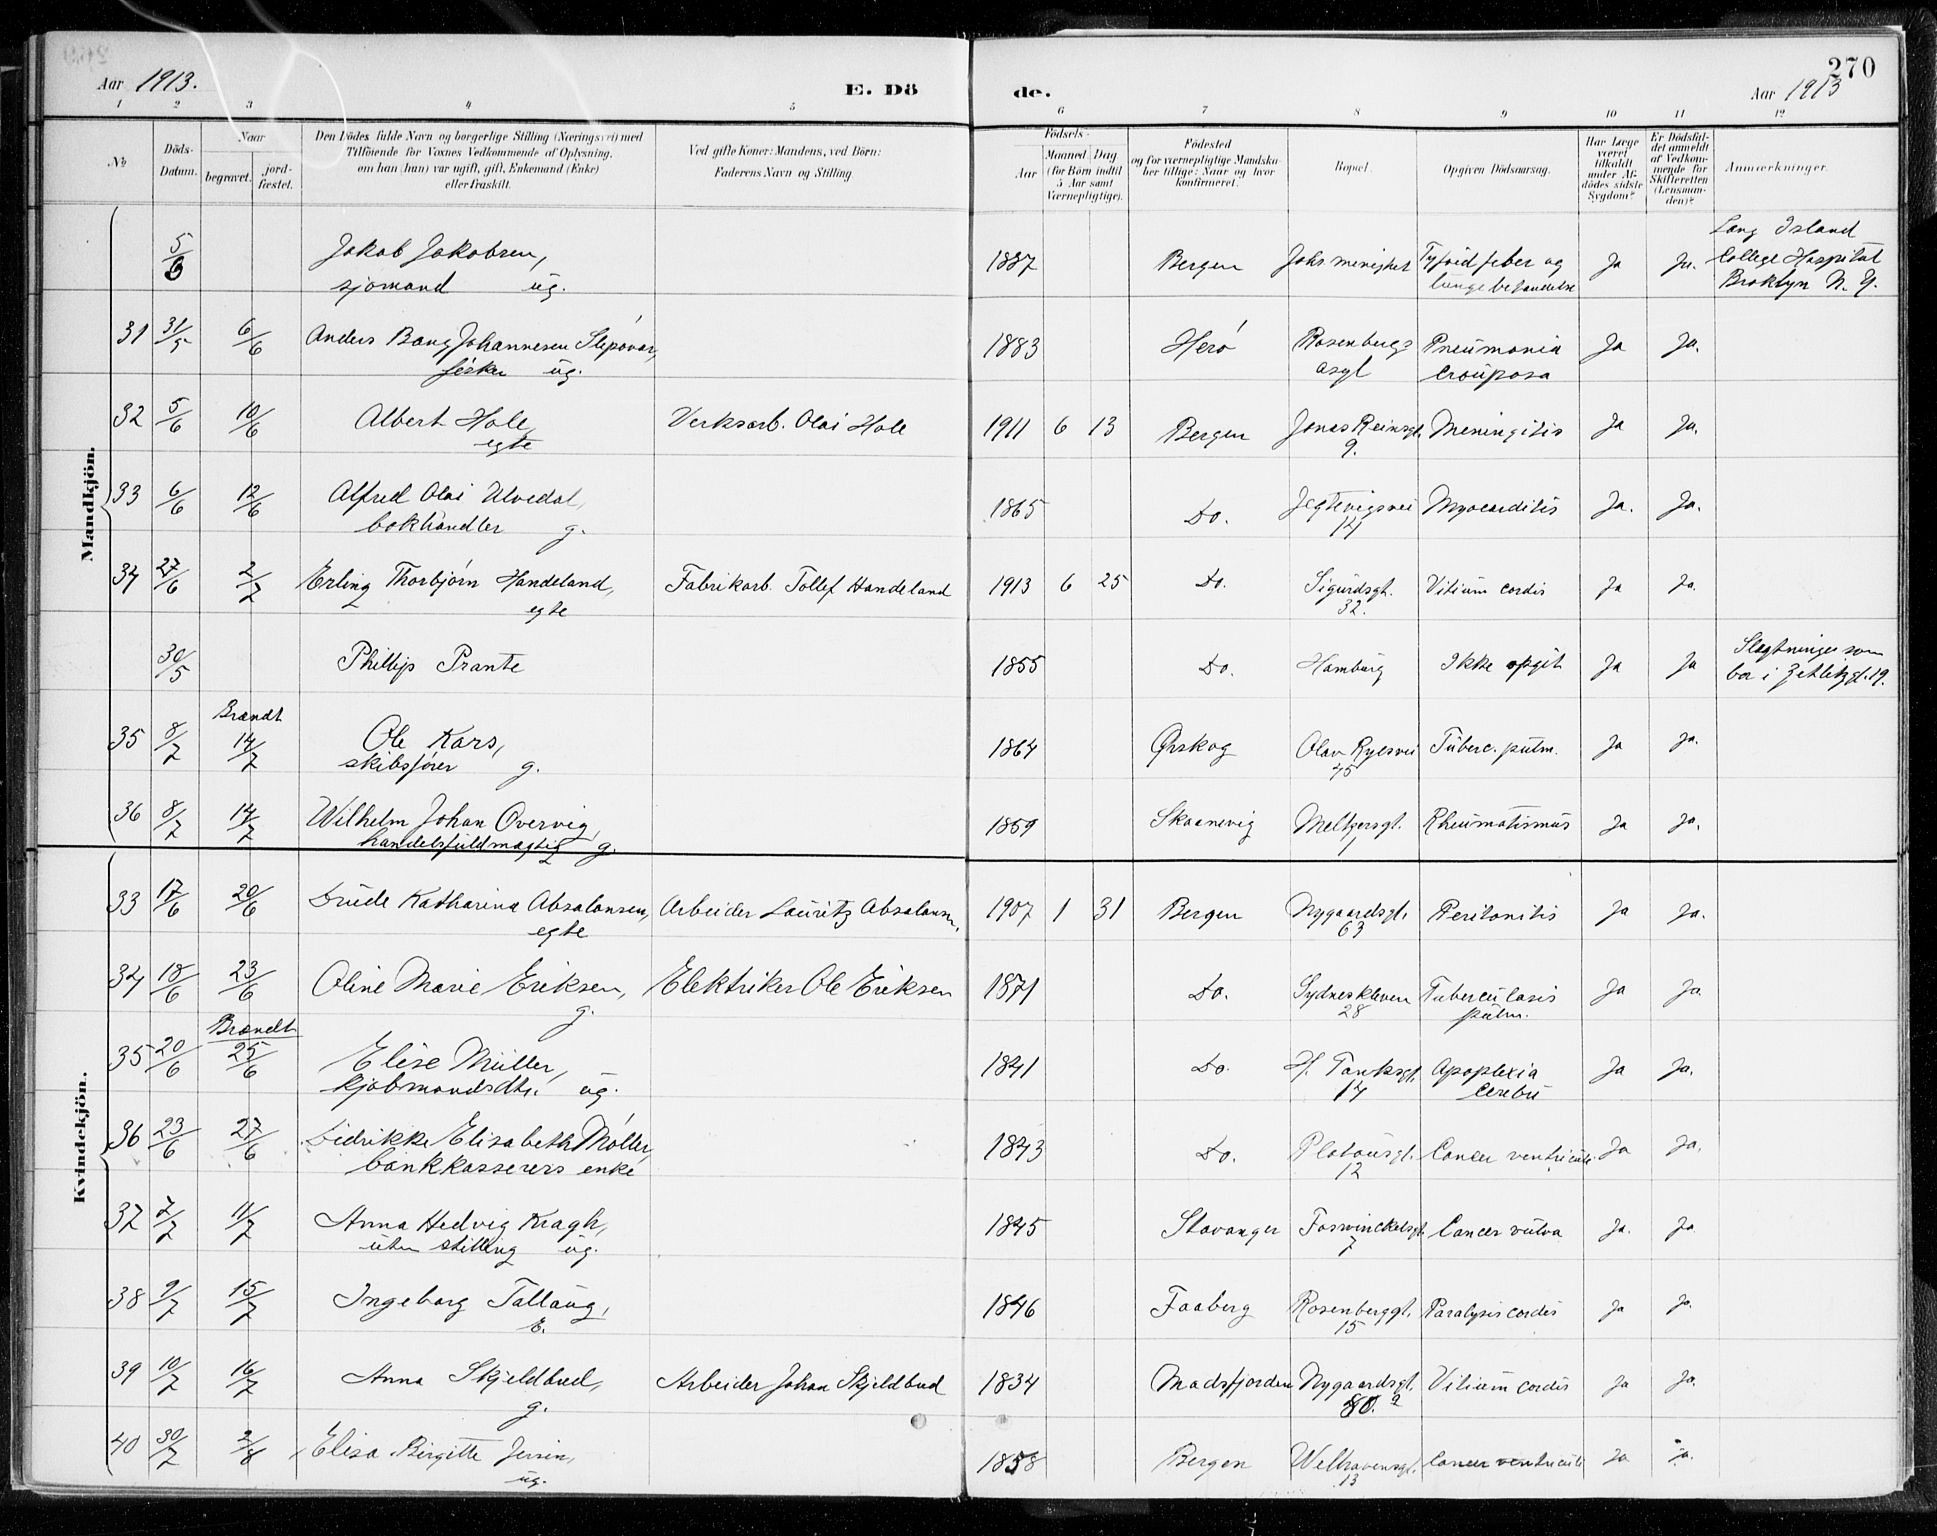 270
Aar 1913. E. Dö de. Aar 1913
1 2 3 4 5 6 7 8 9 10 11 12
No
Döds-Datum.
Naar begravet. jordfæstet.
Den Dödes fulde Navn og borgerlige Stilling (Næringsvei) med
Tilföiende for Voxnes Vedkommende af Oplysning,
om han (hun) var ugift, gift, Enkemand (Enke)
eller fraskilt.
Ved gifte Koner: Mandens, ved Börn:
Faderens Navn og Stilling
Födsels-
Aar Maaned Dag
(for Börn indtil 5 Aar samt Værnepligtige).
Födested
og for værnepligtige Mandskaber tillige: Naar og hvor konfirmeret.
Bopæl.
Opgiven Dödsaarsag.
Har Læge været tilkaldt under Afdödes sidste Sygdom?
Er Dödsfaldet anmeldt af Vedkommende for Skifteretten (Lensmanden)?
Anmærkninger.
Mandkjön.
5/6 Jakob Jakobsen, 1887 Bergen Johs menighet Tyfoid feber og Ja Ja. Long Island
sjømand ug. College Hospital
Broklyn N. Y.
31 31/5 6/6 Anders Bang Johannesen 1883 Herø Rosenbergs Pneumonia Ja Ja.
fisker ug. asyl crouposa
32 5/6 10/6 Albert Hole, Verksarb. Olai Hole 1911 6 13 Bergen Jonas Reinsgt. Meningitis Ja Ja.
egte 9.
33 6/6 12/6 Alfred Olai Ulvedal, 1865 Do. Jegtevigsvei Myocarditis Ja. Ja.
bokhandler g. 14
34 27/6 2/7 Erling Thorbjørn Handeland, Fabrikarb. Tollef Handeland 1913 6 25 Do. Sigurdsgt. Vitium cordis Ja Ja.
egte 32.
30/5 Phillip Prante 1855 Do. Hamburg Ikke opgit Ja Ja Slegtninger som
bor i Zetlitzgt. 19.
Brændt
35 8/7 14/7 Ole Kors, 1864 Ørskog Olav Ryesvei Tuberc. pulm. Ja Ja.
skibsfører g. 45
36 8/7 14/7 Wilhelm Johan Overvig, 1859 Skaanevig Meltzersgt. Rheumatismus Ja Ja.
handelsfuldmægtig g. 1
Kvindekjön.
33 17/6 20/6 Drude Katharina Absalonsen, Arbeider Lauritz Absalonsen, 1907 1 31 Bergen Nygaardsgt. Peritonitis Ja Ja.
egte 63
34 18/6 23/6 Oline Marie Eriksen, Elektriker Ole Eriksen 1871 Do. Sydneskleven Tuberculosis Ja Ja
g. 28 pulm.
Brændt
35 20/6 25/6 Elise Müller, 1841 Do. H. Tanksgt. Apoplexia Ja Ja.
kjøbmandsdtr. ug. 14 cerebri
36 23/6 27/6 Didrikke Elisabeth Møller, 1843 Do. Platousgt. Cancer ventriculi Ja Ja.
bankkasserers enke 12
37 7/7 11/7 Anna Hedvig Kragh, 1845 Stavanger Foswinckelsgt. Cancer vulva Ja. Ja
uten stilling ug. 7
38 9/7 15/7 Ingeborg Tallaug, 1846 Faaberg Rosenberggt. Paralysis cordis Ja Ja.
E. 15
39 10/7 16/7 Anna Skjeldbred, Arbeider Johan Skjeldbred 1834 Madsfjorden Nygaardsgt. Vitium cordis Ja Ja.
g. 80.
40 30/7 2/8 Elisa Birgitte Jersin, 1858 Bergen Welhavensgt. Cancer ventriculi Ja Ja.
ug. 13